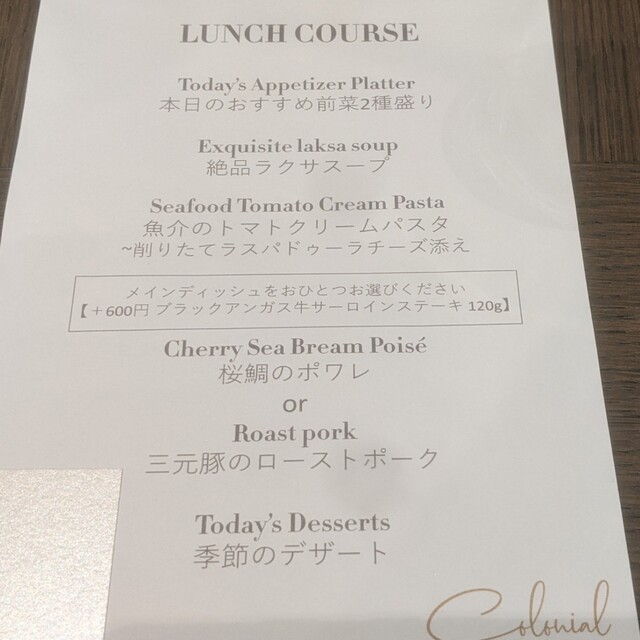 LUNCH COURSE
Today's Appetizer Platter
本日のおすすめ前菜2種盛り
Exquisite laksa soup
絶品ラクサスープ
Seafood Tomato Cream Pasta
魚介のトマトクリームパスタ
~削りたてラスパドゥーラチーズ添え
メインディッシュをおひとつお選びください
【＋600円 ブラックアンガス牛サーロインステーキ 120g】
Cherry Sea Bream Poisé
桜鯛のポワレ
or
Roast pork
三元豚のローストポーク
Today's Desserts
季節のデザート
Colonial